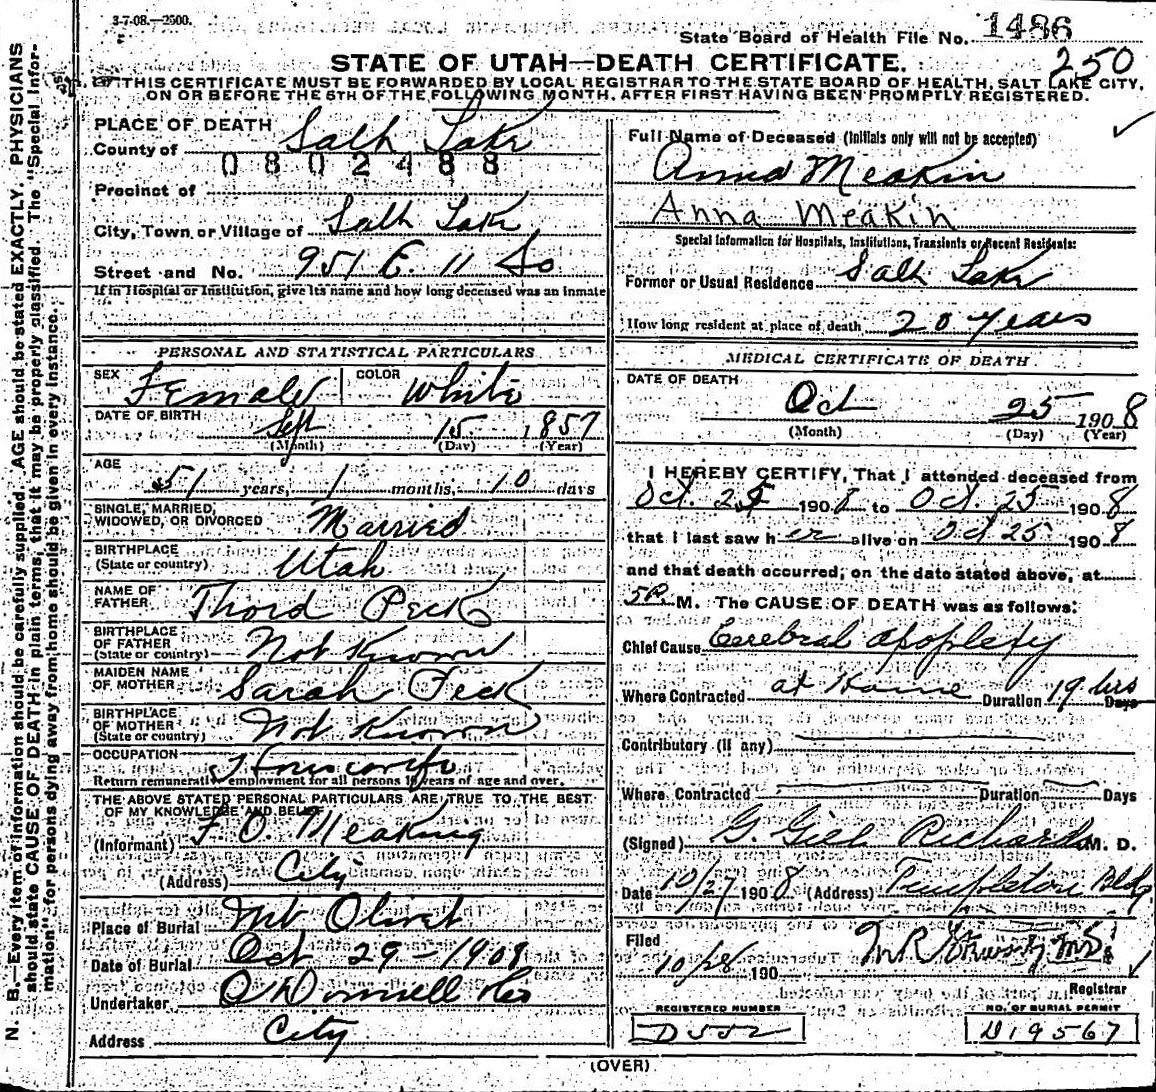 3-7-08.—2500.
State Board of Health File No. 1486
250
STATE OF UTAH—DEATH CERTIFICATE.
THIS CERTIFICATE MUST BE FORWARDED BY LOCAL REGISTRAR TO THE STATE BOARD OF HEALTH, SALT LAKE CITY,
ON OR BEFORE THE 5TH OF THE FOLLOWING MONTH, AFTER FIRST HAVING BEEN PROMPTLY REGISTERED.
N. B.—Every item of information should be carefully supplied. AGE should be stated EXACTLY. PHYSICIANS
should state CAUSE OF DEATH in plain terms, that it may be properly classified. The "Special Infor-
mation" for persons dying away from home should be given in every instance.
PLACE OF DEATH
County of Salt Lake
0802488
Precinct of
City, Town or Village of Salt Lake
Street and No. 951 E. 11 So
If in Hospital or Institution, give its name and how long deceased was an inmate
PERSONAL AND STATISTICAL PARTICULARS
SEX Female COLOR White
DATE OF BIRTH Sept 15 1857
(Month) (Day) (Year)
AGE
51 years, 1 months, 10 days
SINGLE, MARRIED,
WIDOWED, OR DIVORCED Married
BIRTHPLACE
(State or country) Utah
NAME OF
FATHER Thord Peck
BIRTHPLACE
OF FATHER
(State or country) Not Known
MAIDEN NAME
OF MOTHER Sarah Peck
BIRTHPLACE
OF MOTHER
(State or country) Not Known
OCCUPATION Housewife
Return remunerative employment for all persons 10 years of age and over.
THE ABOVE STATED PERSONAL PARTICULARS ARE TRUE TO THE BEST
OF MY KNOWLEDGE AND BELIEF
(Informant) F. O. Meaking
(Address) City
Place of Burial Mt Olivet
Date of Burial Oct 29 - 1908
Undertaker O'Donnell
Address City
Full Name of Deceased (Initials only will not be accepted)
Anna Meakin
Anna Meakin
Special Information for Hospitals, Institutions, Transients or Recent Residents:
Former or Usual Residence Salt Lake
How long resident at place of death 20 years
MEDICAL CERTIFICATE OF DEATH
DATE OF DEATH
Oct 25 1908
(Month) (Day) (Year)
I HEREBY CERTIFY, That I attended deceased from
Oct. 25 1908 to Oct. 25 1908
that I last saw her alive on Oct 25 1908
and that death occurred, on the date stated above, at
5P. M. The CAUSE OF DEATH was as follows:
Chief Cause Cerebral apoplexy
Where Contracted at Home Duration 19 hrs Days
Contributory (if any)
Where Contracted Duration Days
(Signed) G. Gill Richards M. D.
Date 10/27 1908 (Address) Templeton Bldg.
Filed
10/28 190
Registrar
REGISTERED NUMBER
D552
NO. OF BURIAL PERMIT
D19567
(OVER)